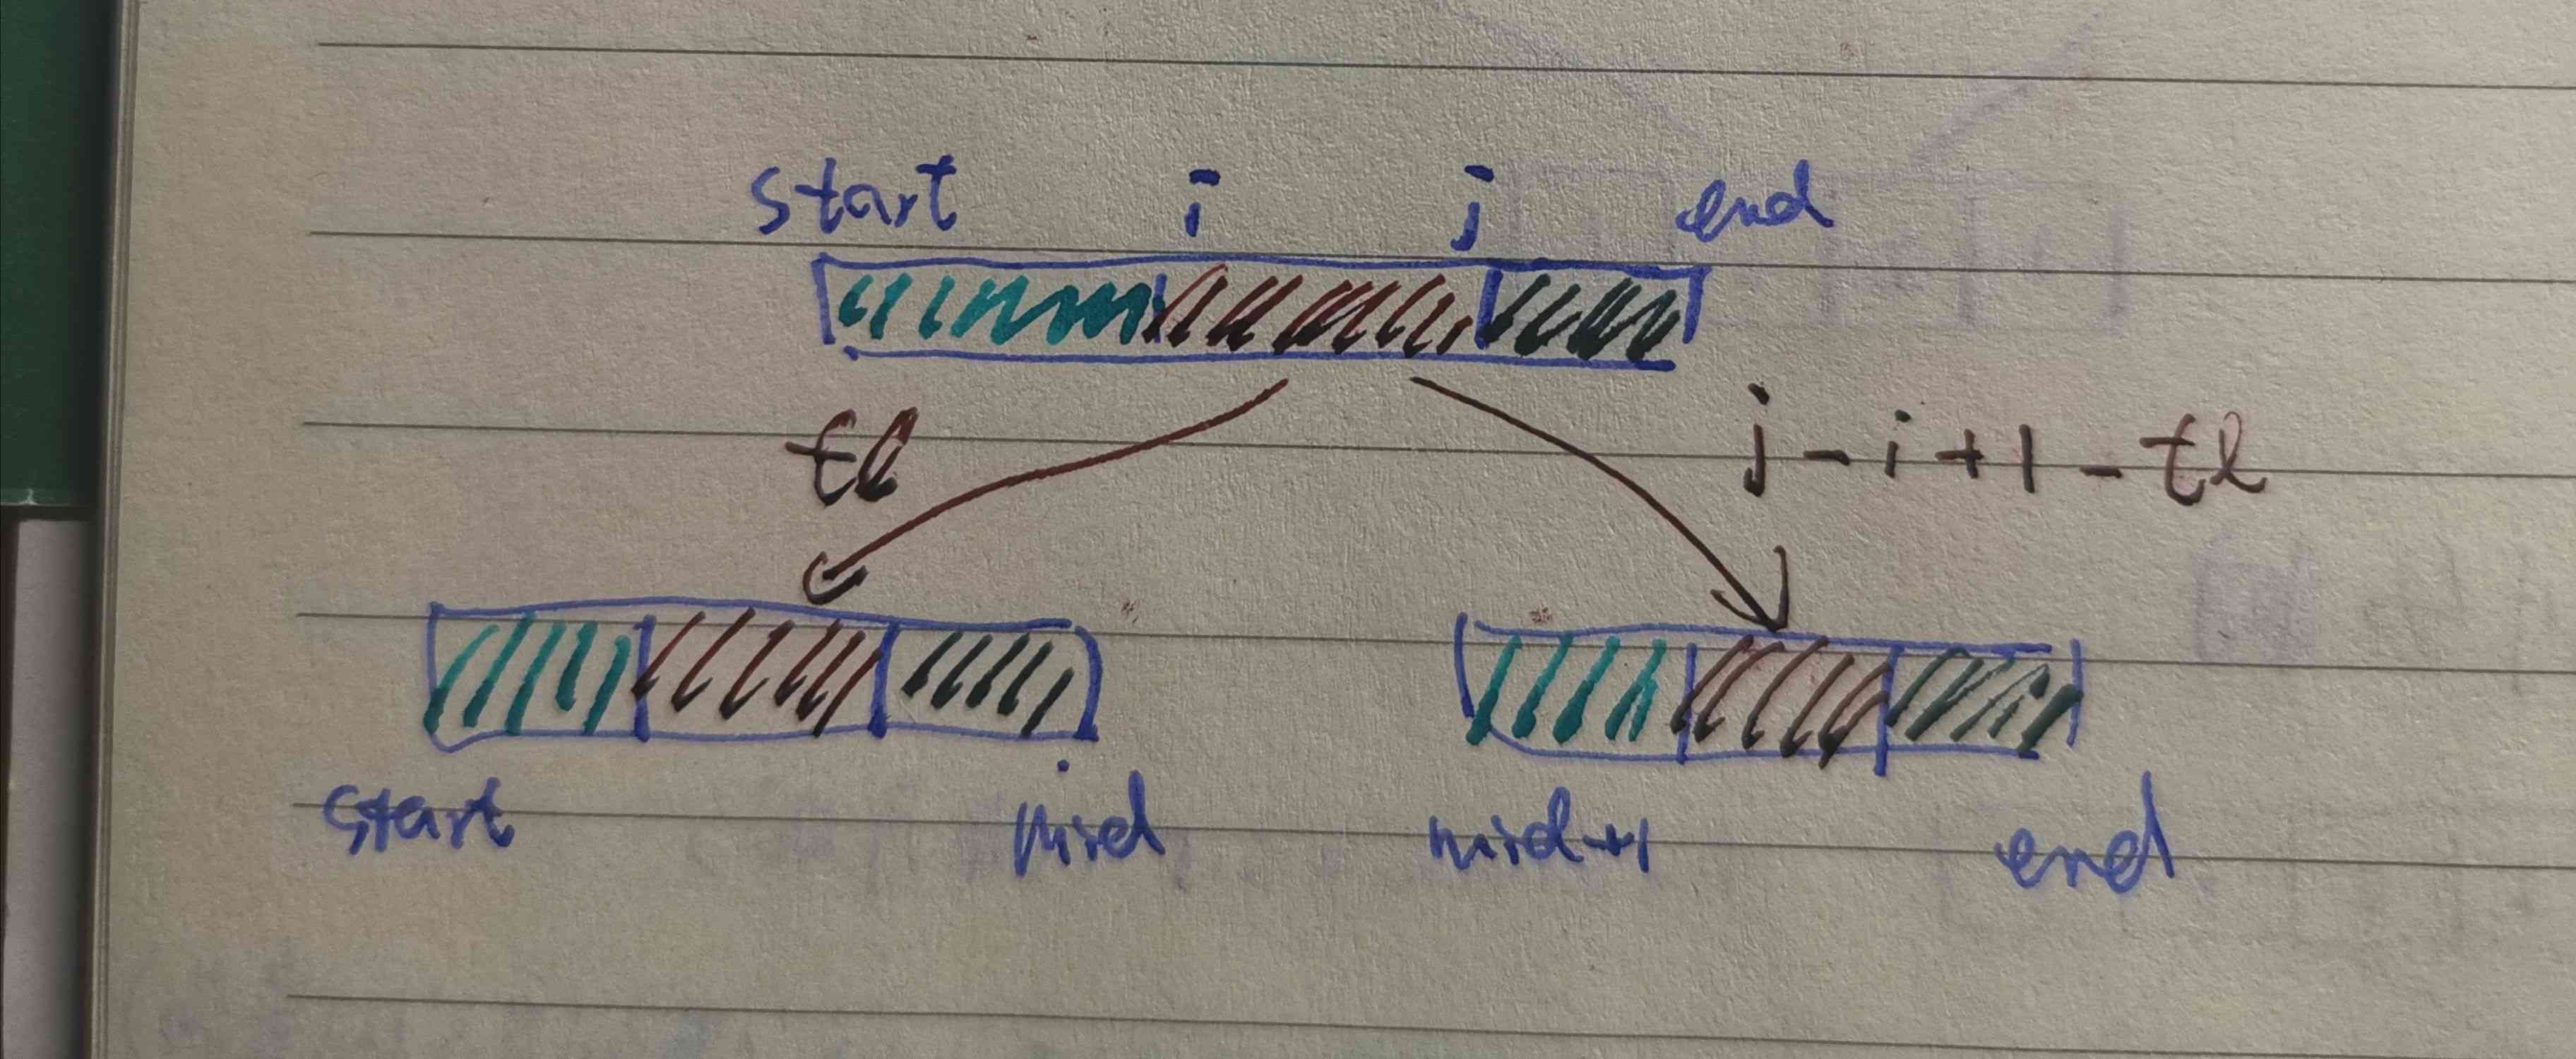 start i j end
tl j-i+1-tl
start mid mid+1 end